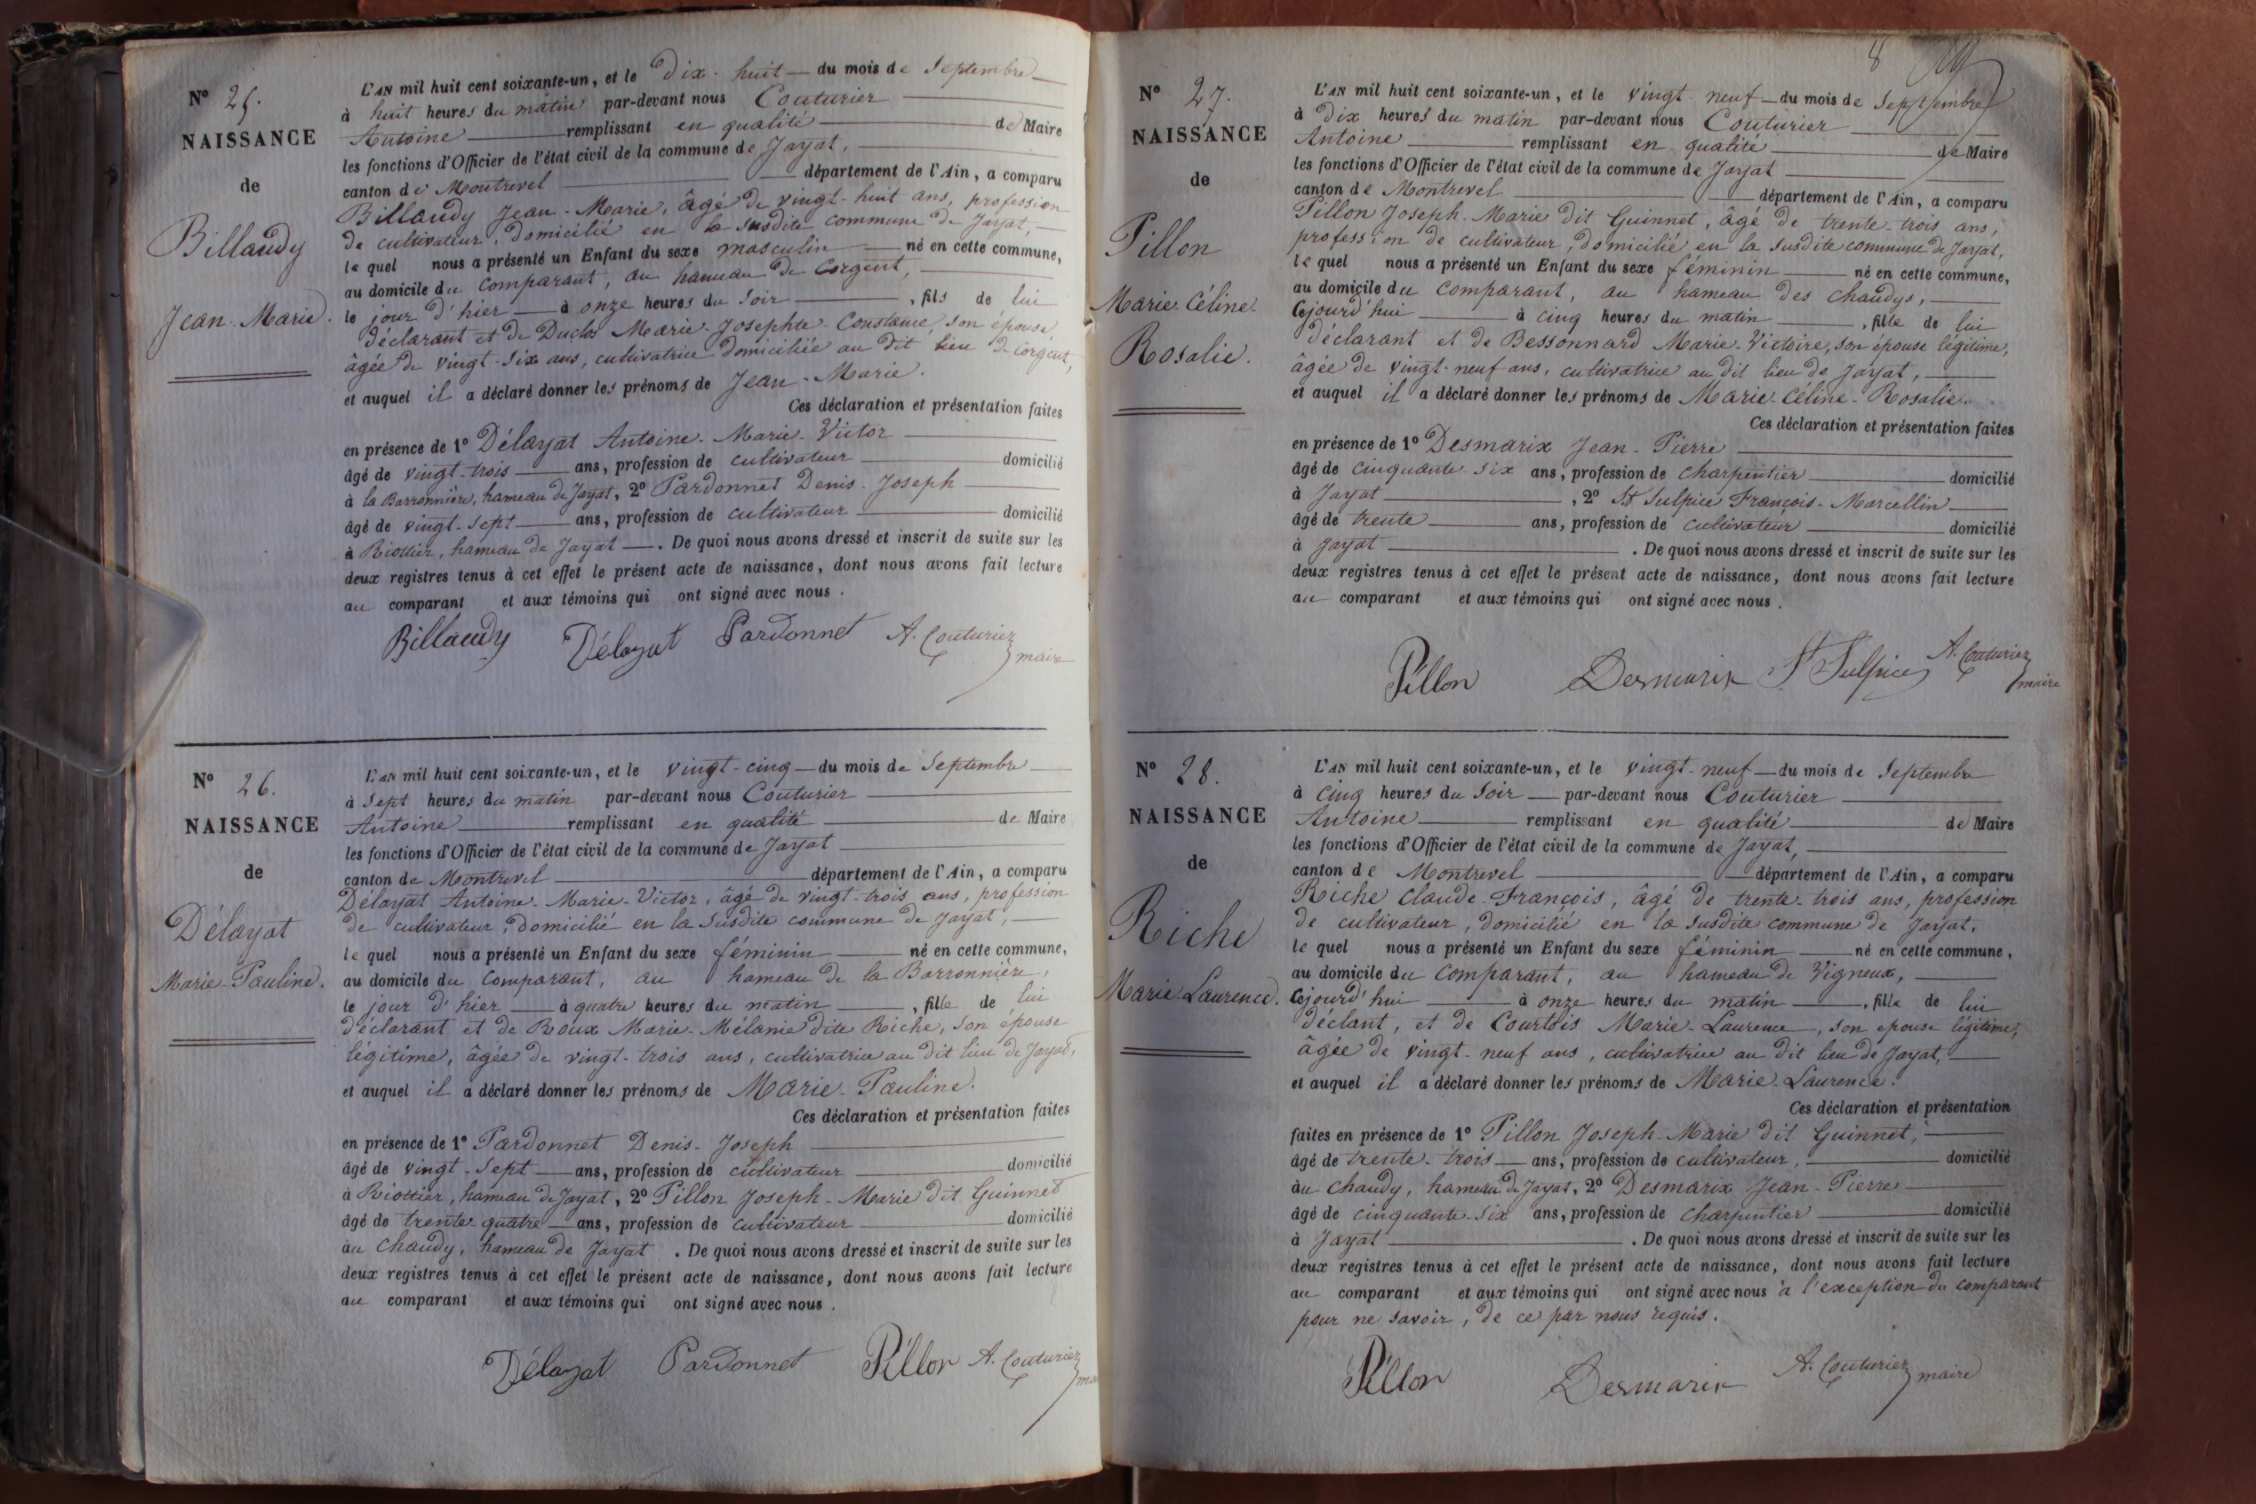 N° 25.
NAISSANCE
de
Billaudy
Jean-Marie.
L'AN mil huit cent soixante-un, et le dix-huit du mois de Septembre
à huit heures du matin par-devant nous Couturier
Antoine remplissant en qualité de Maire
les fonctions d'Officier de l'état civil de la commune de Jayat,
canton de Montrevel département de l'Ain, a comparu
Billaudy Jean-Marie, âgé de vingt-huit ans, profession
de cultivateur, domicilié en la susdite commune de Jayat,
lequel nous a présenté un Enfant du sexe masculin né en cette commune,
au domicile du comparant, au hameau de Corgent,
le jour d'hier à onze heures du Soir, fils de lui
déclarant et de Duclos Marie-Josephte-Constance, son épouse
âgée de vingt-six ans, cultivatrice domiciliée au dit lieu de Corgent,
et auquel il a déclaré donner les prénoms de Jean-Marie.
Ces déclaration et présentation faites
en présence de 1° Délayat Antoine-Marie-Victor
âgé de vingt-trois ans, profession de cultivateur domicilié
à la Barronnière, hameau de Jayat, 2° Pardonnet Denis-Joseph
âgé de vingt-sept ans, profession de cultivateur domicilié
à Riottier, hameau de Jayat. De quoi nous avons dressé et inscrit de suite sur les
deux registres tenus à cet effet le présent acte de naissance, dont nous avons fait lecture
au comparant et aux témoins qui ont signé avec nous.
Billaudy Délayat Pardonnet A. Couturier
maire
N° 26.
NAISSANCE
de
Délayat
Marie-Pauline.
L'AN mil huit cent soixante-un, et le vingt-cinq du mois de Septembre
à Sept heures du matin par-devant nous Couturier
Antoine remplissant en qualité de Maire
les fonctions d'Officier de l'état civil de la commune de Jayat
canton de Montrevel département de l'Ain, a comparu
Délayat Antoine-Marie-Victor, âgé de vingt-trois ans, profession
de cultivateur, domicilié en la susdite commune de Jayat,
lequel nous a présenté un Enfant du sexe féminin né en cette commune,
au domicile du comparant, au hameau de la Barronnière,
le jour d'hier à quatre heures du matin, fille de lui
déclarant et de Roux Marie-Mélanie dite Riche, son épouse
légitime, âgée de vingt-trois ans, cultivatrice au dit lieu de Jayat,
et auquel il a déclaré donner les prénoms de Marie-Pauline.
Ces déclaration et présentation faites
en présence de 1° Pardonnet Denis-Joseph
âgé de vingt-sept ans, profession de cultivateur domicilié
à Riottier, hameau de Jayat, 2° Pillon Joseph-Marie dit Guinnet
âgé de trente quatre ans, profession de cultivateur domicilié
au Chaudy, hameau de Jayat. De quoi nous avons dressé et inscrit de suite sur les
deux registres tenus à cet effet le présent acte de naissance, dont nous avons fait lecture
au comparant et aux témoins qui ont signé avec nous.
Délayat Pardonnet Pillon A. Couturier
8
N° 27.
NAISSANCE
de
Pillon
Marie Céline
Rosalie.
L'AN mil huit cent soixante-un, et le vingt-neuf du mois de Septembre
à dix heures du matin par-devant nous Couturier
Antoine remplissant en qualité de Maire
les fonctions d'Officier de l'état civil de la commune de Jayat
canton de Montrevel département de l'Ain, a comparu
Pillon Joseph-Marie dit Guinnet, âgé de trente-trois ans,
profession de cultivateur, domicilié en la susdite commune de Jayat,
lequel nous a présenté un Enfant du sexe féminin né en cette commune,
au domicile du comparant, au hameau des chaudys,
Cejourd'hui à cinq heures du matin, fille de lui
déclarant et de Bessonnard Marie-Victoire, son épouse légitime,
âgée de vingt-neuf ans, cultivatrice au dit lieu de Jayat,
et auquel il a déclaré donner les prénoms de Marie-Céline-Rosalie.
Ces déclaration et présentation faites
en présence de 1° Desmarix Jean-Pierre
âgé de cinquante-six ans, profession de charpentier domicilié
à Jayat, 2° St Sulpice François-Marcellin
âgé de trente ans, profession de cultivateur domicilié
à Jayat. De quoi nous avons dressé et inscrit de suite sur les
deux registres tenus à cet effet le présent acte de naissance, dont nous avons fait lecture
au comparant et aux témoins qui ont signé avec nous.
Pillon Desmarix St Sulpice A. Couturier
maire
N° 28.
NAISSANCE
de
Riche
Marie Laurence.
L'AN mil huit cent soixante-un, et le vingt-neuf du mois de Septembre
à Cinq heures du Soir par-devant nous Couturier
Antoine remplissant en qualité de Maire
les fonctions d'Officier de l'état civil de la commune de Jayat,
canton de Montrevel département de l'Ain, a comparu
Riche Claude-François, âgé de trente-trois ans, profession
de cultivateur, domicilié en la susdite commune de Jayat,
lequel nous a présenté un Enfant du sexe féminin né en cette commune,
au domicile du comparant, au hameau de Vigneux,
Cejourd'hui à onze heures du matin, fille de lui
déclant, et de Courtois Marie-Laurence, son épouse légitime,
âgée de vingt-neuf ans, cultivatrice au dit lieu de Jayat,
et auquel il a déclaré donner les prénoms de Marie-Laurence.
Ces déclaration et présentation
faites en présence de 1° Pillon Joseph-Marie dit Guinnet,
âgé de trente-trois ans, profession de cultivateur, domicilié
au chaudy, hameau de Jayat, 2° Desmarix Jean-Pierre
âgé de cinquante-six ans, profession de charpentier domicilié
à Jayat. De quoi nous avons dressé et inscrit de suite sur les
deux registres tenus à cet effet le présent acte de naissance, dont nous avons fait lecture
au comparant et aux témoins qui ont signé avec nous à l'exception du comparant
pour ne savoir, de ce par nous requis.
Pillon Desmarix A. Couturier
maire